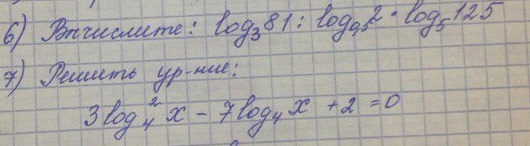 6) Вычислите: log₃81 : log₀,₅2 · log₅125
7) Решить ур-ние:
3log₄²x - 7log₄x + 2 = 0